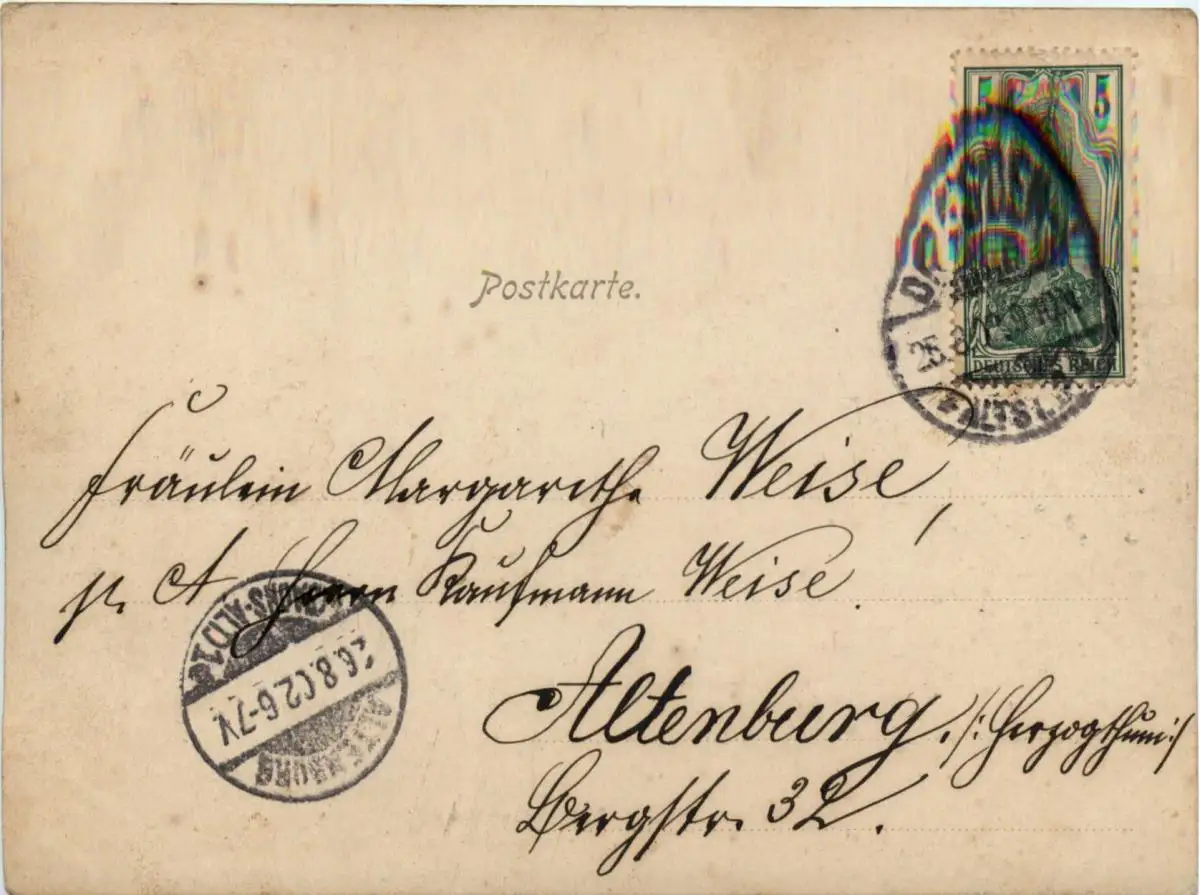 5
DEUTSCHES REICH
DRESDEN
25.8.
ALTST.
Postkarte.
Fräulein Margarethe Weise,
p. A. Herrn Kaufmann Weise.
Altenburg /: Herzogthum :/
Bergstr. 32.
ALTENBURG
26.8.02.6-7V.
SACHS.-ALT.